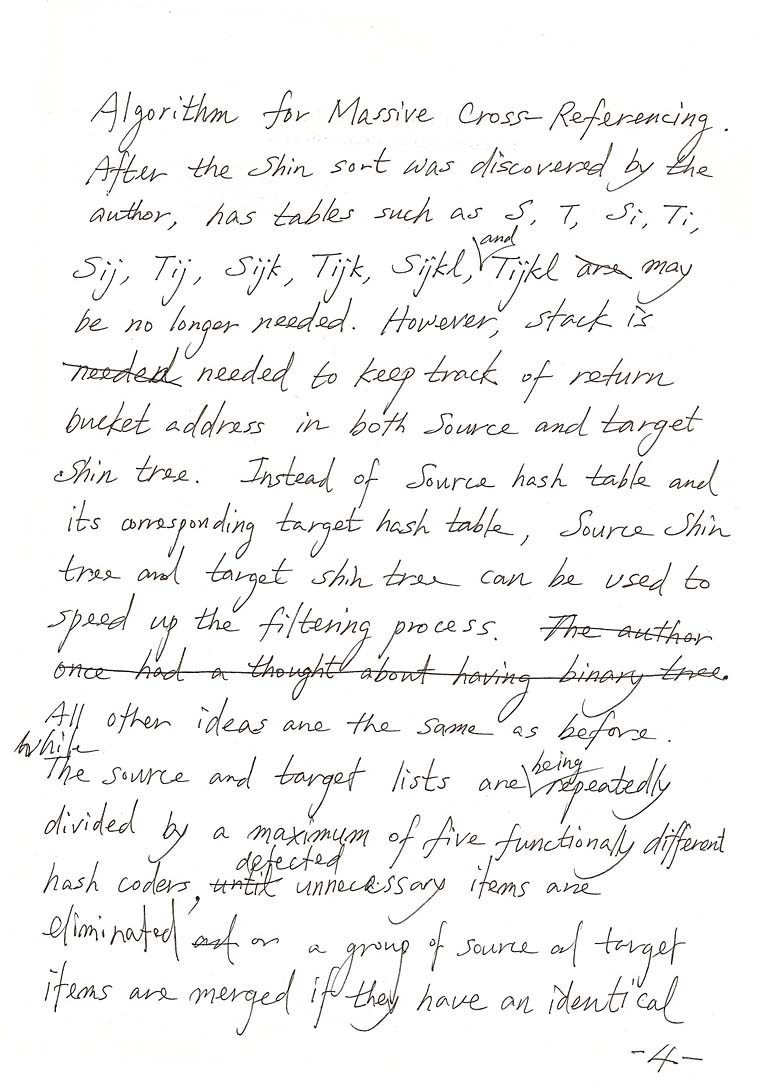 Algorithm for Massive Cross-Referencing.
After the Shin sort was discovered by the
author, has tables such as S, T, Si, Ti,
and
Sij, Tij, Sijk, Tijk, Sijkl, Tijkl are may
be no longer needed. However, stack is
needed needed to keep track of return
bucket address in both Source and target
Shin tree. Instead of Source hash table and
its corresponding target hash table, Source Shin
tree and target shin tree can be used to
speed up the filtering process. The author
once had a thought about having binary tree.
All other ideas are the same as before.
While
The source and target lists are being repeatedly
divided by a maximum of five functionally different
detected
hash coders, until unnecessary items are
eliminated and or a group of source ad target
items are merged if they have an identical
-4-